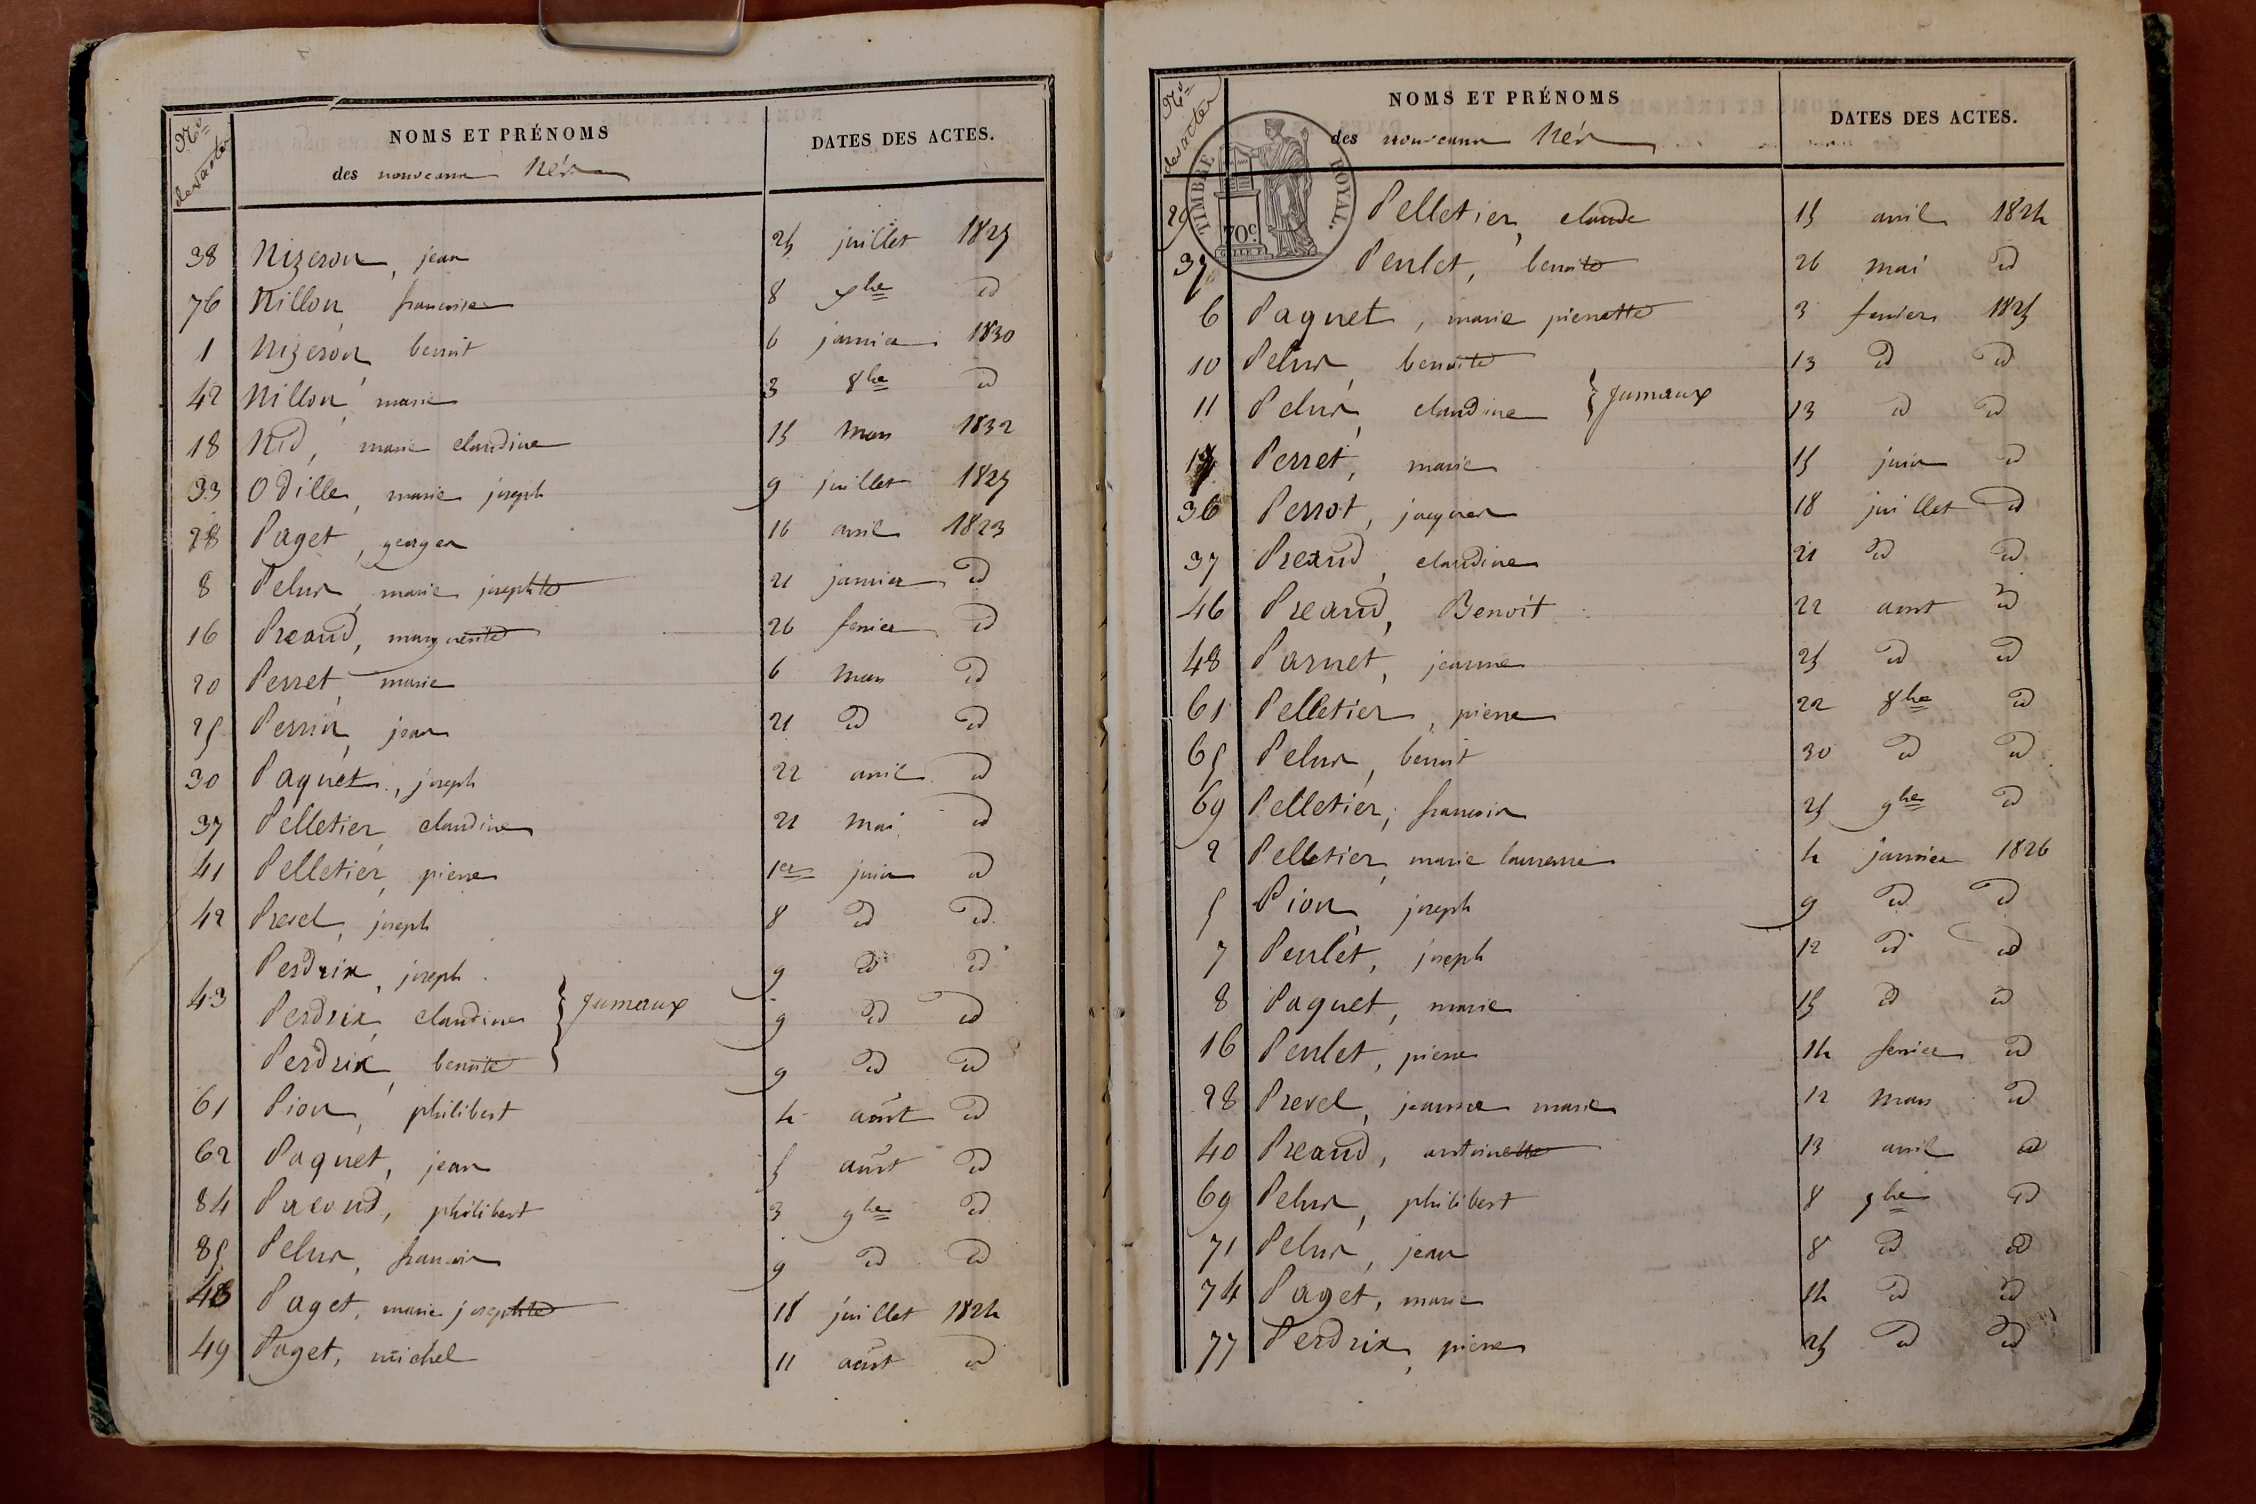 Nos des actes
NOMS ET PRÉNOMS
des nouveaux Nés
DATES DES ACTES.
38 Nizeron, jean 25 juillet 1825
76 Nillon, francoise 8 xbre id
1 Nizeron, benoit 6 janvier 1830
42 Nillon, marie 3 8bre id
18 Nid, marie claudine 15 mars 1832
33 Odille, marie joseph 9 juillet 1825
28 Paget, georges 16 avril 1823
8 Pelux, marie josephte 21 janvier id
16 Preaud, marguerite 26 fevrier id
20 Perret, marie 6 mars id
25 Perrin, jean 21 id id
30 Paquet, joseph 22 avril id
37 Pelletier, claudine 21 mai id
41 Pelletier, pierre 1er juin id
42 Prevel, joseph 8 id id
Perdrix, joseph 9 id id
43 Perdrix, claudine } Jumeaux 9 id id
Perdrix, benoite 9 id id
61 Pion, philibert 4 août id
62 Paquet, jean 5 août id
84 Pacoud, philibert 3 9bre id
85 Pelux, francois 9 id id
48 Paget, marie josephte 18 juillet 1824
49 Paget, michel 11 août id
Nos des actes
NOMS ET PRÉNOMS
des nouveaux Nés
DATES DES ACTES.
TIMBRE ROYAL.
70c.
29 Pelletier, claude 15 avril 1824
35 Penlet, benoite 26 mai id
6 Paquet, marie pierrette 3 fevrier 1825
10 Pelux, benoite 13 id id
11 Pelux, claudine } Jumeaux 13 id id
Perret, marie 15 juin id
36 Perrot, jacques 18 juillet id
37 Preaud, claudine 21 id id
46 Preaud, Benoit 22 aout id
48 Parnet, jeanne 25 id id
61 Pelletier, pierre 22 8bre id
65 Pelux, benoit 30 id id
69 Pelletier, francois 25 9bre id
2 Pelletier, marie laurence 4 janvier 1826
5 Pion, joseph 9 id id
7 Penlet, joseph 12 id id
8 Paquet, marie 15 id id
16 Penlet, pierre 14 fevrier id
28 Prevel, jeanne marie 12 mars id
40 Preaud, antoinette 13 avril id
69 Pelux, philibert 8 9bre id
71 Pelux, jean 8 id id
74 Paget, marie 14 id id
77 Perdrix, pierre 25 id id